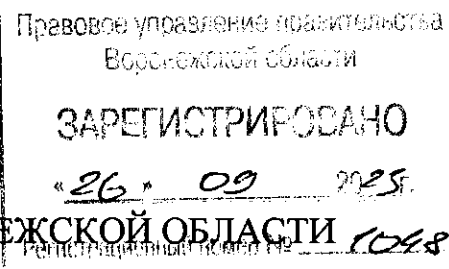 Правовое управление правительства
Воронежской области
ЗАРЕГИСТРИРОВАНО
« 26 » 09 2025г.
ЕЖСКОЙ ОБЛАСТИ
Регистрационный номер № 1048